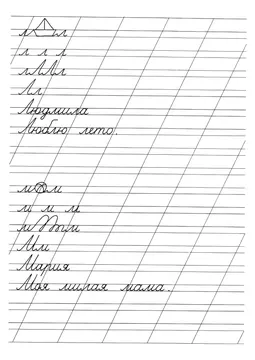 л л
л л л
лЛЛл
Лл
Людмила
Люблю лето.
м м
м м м
мММм
Мм
Мария
Моя милая мама.